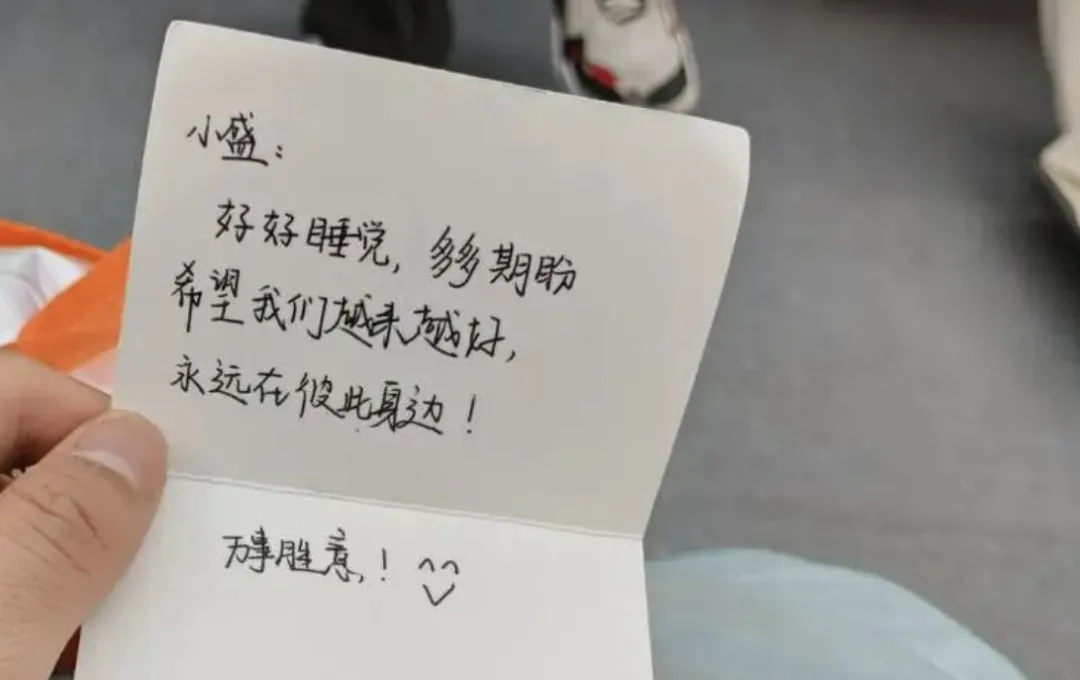 小盛：
好好睡觉，多多期盼
希望我们越来越好，
永远在彼此身边！
万事胜意！